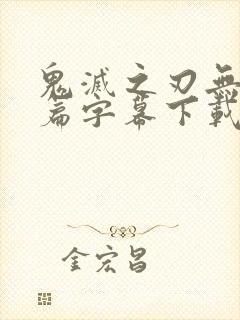 鬼滅之刃無
篇字幕下載
金宏昌